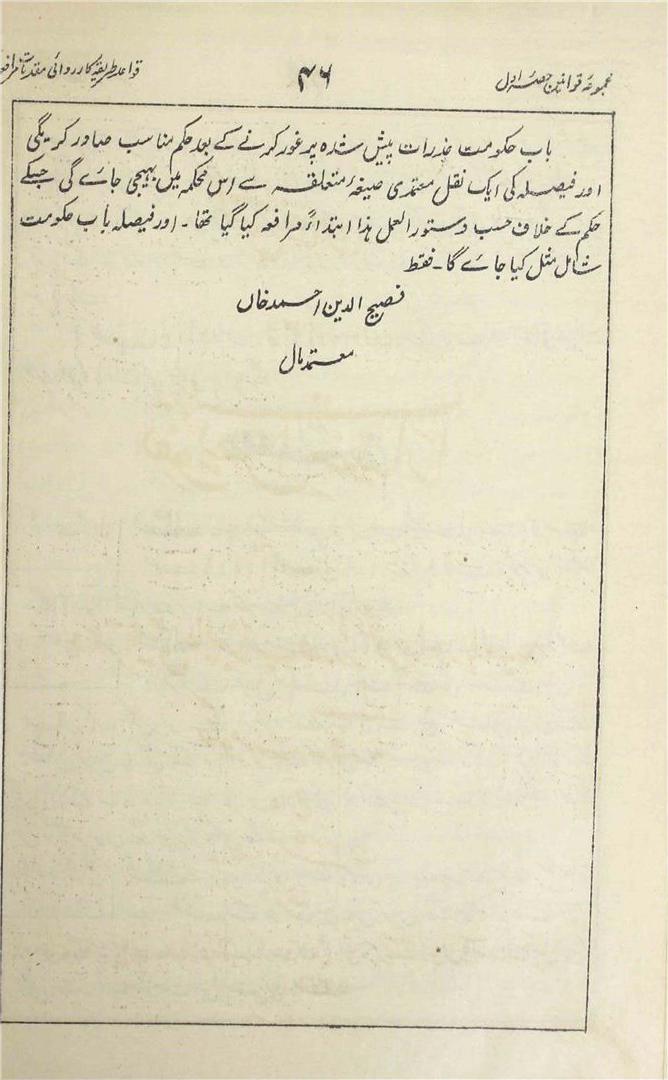 مجموعۂ قوانین حصۂ اول ۴۶ قواعد طریقۂ کارروائی مقدمات مرافعہ
باب حکومت عذرات پیش شدہ پر غور کرنے کے بعد حکم مناسب صادر کریگی
اور فیصلہ کی ایک نقل معتمدی صیغۂ متعلقہ سے اس محکمہ میں بھیجی جائے گی جسکے
حکم کے خلاف حسب دستور العمل ہذا ابتداءً مرافعہ کیا گیا تھا۔ اور فیصلہ باب حکومت
شامل مثل کیا جائے گا۔ فقط
فصیح الدین احمد خاں
معتمد مال